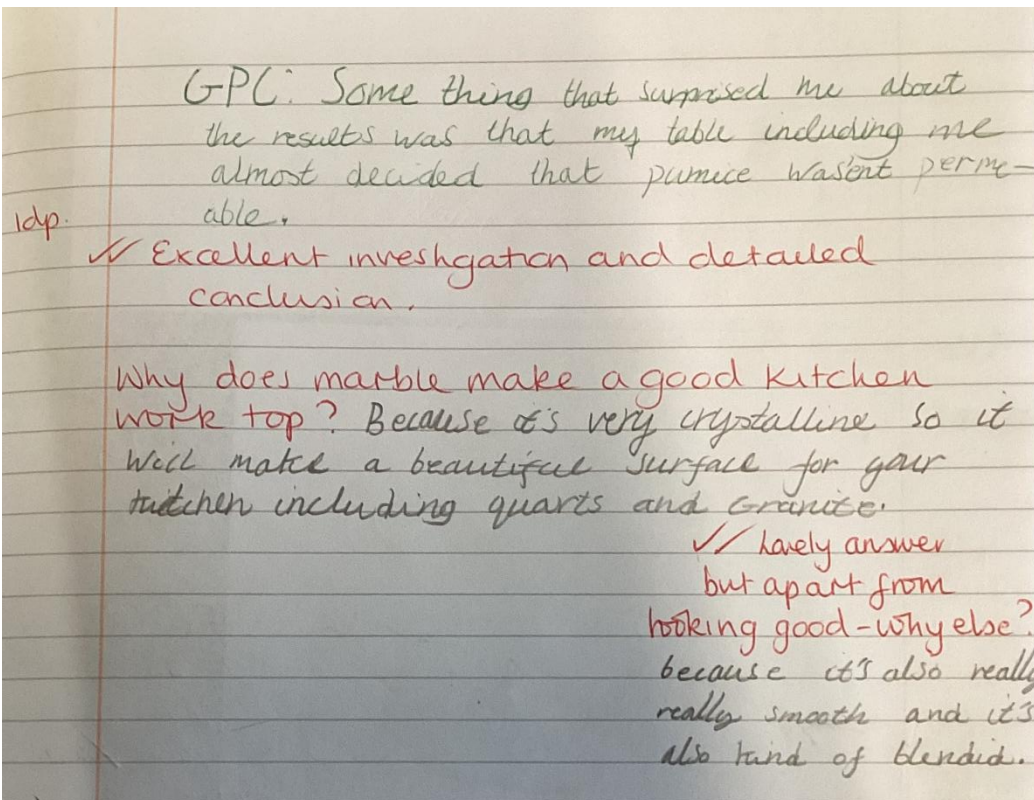 GPC: Some thing that surprised me about
the results was that my table including me
almost decided that pumice wasent perme-
able.
1dp.
✓✓ Excellent investigation and detailed
conclusion.
Why does marble make a good kitchen
work top? Because it's very crystalline so it
will make a beautiful surface for your
kutchen including quarts and Granite.
✓✓ Lovely answer
but apart from
looking good - why else?
because it's also really
really smooth and it's
also kind of blended.